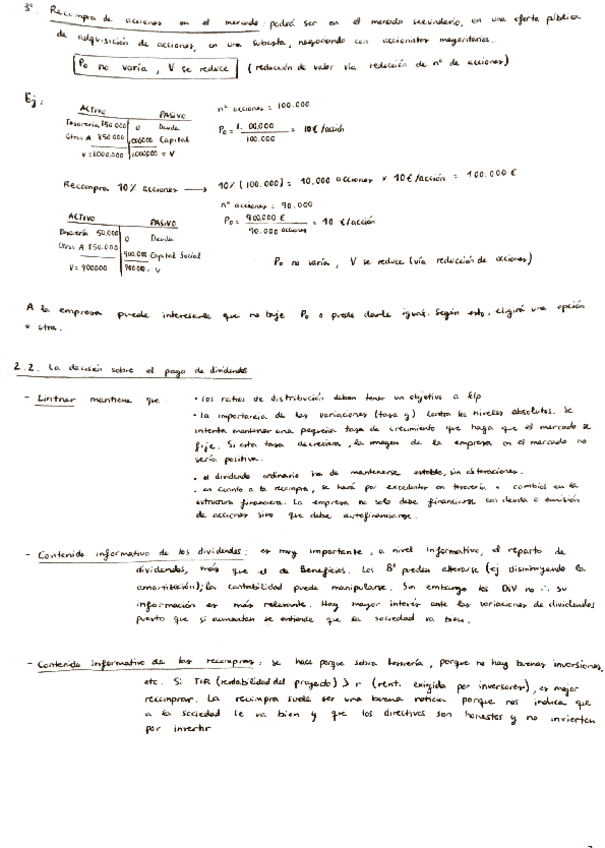 3º. Recompra de acciones en el mercado: podrá ser en el mercado secundario, en una oferta pública
de adquisición de acciones, en una subasta, negociando con accionistas mayoritarios.
P₀ no varía, V se reduce (reducción de valor vía reducción de nº de acciones)
Ej:
ACTIVO PASIVO
Tesorería 150.000 0 Deuda
Otros A 850.000 1000000 Capital
V=1000.000 1.000.000 = V
nº acciones = 100.000
P₀ = 1.000.000 / 100.000 = 10€/acción
Recompra 10% acciones → 10% (100.000) = 10.000 acciones × 10€/acción = 100.000 €
nº acciones = 90.000
P₀ = 900.000 € / 90.000 acciones = 10 €/acción
ACTIVO PASIVO
Tesorería 50.000 0 Deuda
Otros A 850.000 900.000 Capital Social
V= 900000 900.000 = V
P₀ no varía, V se reduce (vía reducción de acciones)
A la empresa puede interesarle que no baje P₀ o puede darle igual. Según esto, eligirá una opción
u otra.
2.2. La decisión sobre el pago de dividendos
- Lintner mantiene que • los ratios de distribución deben tener un objetivo a l/p
• la importancia de las variaciones (tasa g) contra los niveles absolutos. Se
intenta mantener una pequeña tasa de crecimiento que haga que el mercado se
fije. Si esta tasa decreciera, la imagen de la empresa en el mercado no
sería positiva.
• el dividendo ordinario ha de mantenerse estable, sin alteraciones.
• en cuanto a la recompra, se hará por excedentes en tesorería o cambios en la
estructura financiera. La empresa no solo debe financiarse con deuda o emisión
de acciones sino que debe autofinanciarse.
- Contenido informativo de los dividendos: es muy importante, a nivel informativo, el reparto de
dividendos, más que el de Beneficios. Los Bº pueden alterarse (ej disminuyendo la
amortización); la contabilidad puede manipularse. Sin embargo los DIV no ∴ su
información es más relevante. Hay mayor interés ante las variaciones de dividendos
puesto que si aumentan se entiende que la sociedad va bien.
- Contenido informativo de las recompras: se hace porque sobra tesorería, porque no hay buenas inversiones,
etc. Si TIR (rentabilidad del proyecto) > r (rent. exigida por inversores), es mejor
recomprar. La recompra suele ser una buena noticia porque nos indica que
a la sociedad le va bien y que los directivos son honestos y no invierten
por invertir